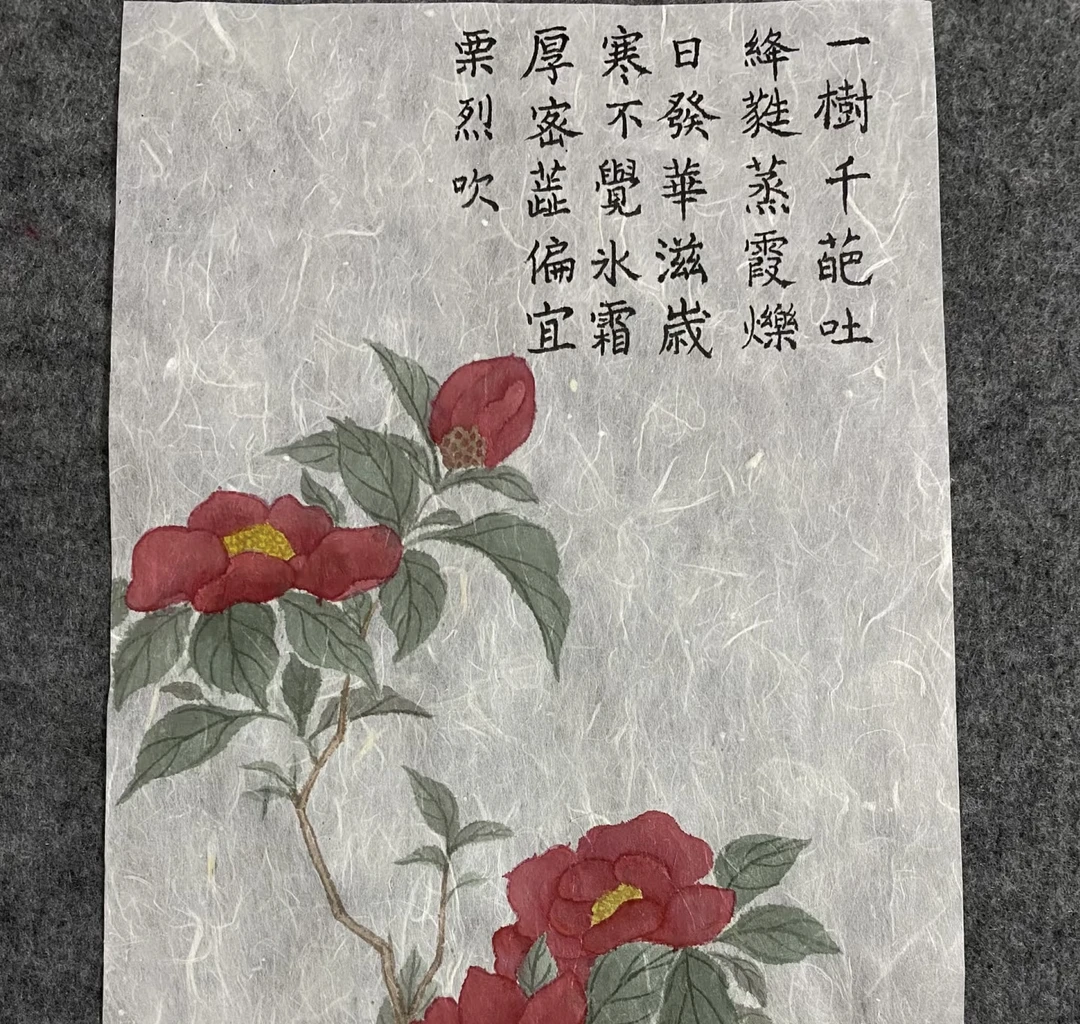 一樹千葩吐
絳蕤蒸霞爍
日發華滋歲
寒不覺氷霜
厚密蕋偏宜
栗烈吹